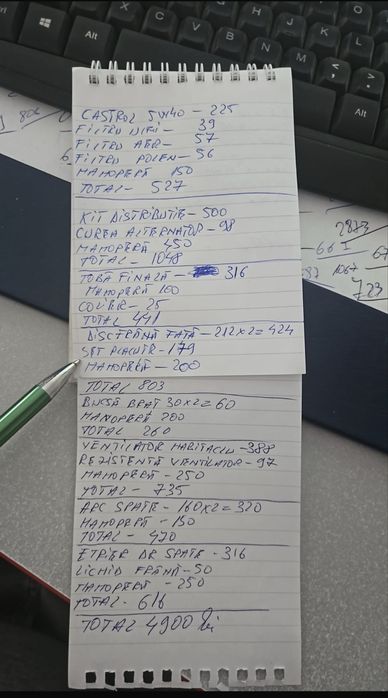 CASTROL 5W40 - 225
FILTRU ULEI - 39
FILTRU AER - 57
FILTRU POLEN - 56
MANOPERĂ 150
TOTAL - 527
KIT DISTRIBUTIE - 500
CUREA ALTERNATOR - 98
MANOPERĂ 450
TOTAL - 1048
TOBĂ FINALĂ - 316
MANOPERĂ 100
COLIER - 25
TOTAL 441
DISC FRÂNĂ FATĂ - 212x2=424
SET PLACUTE - 179
MANOPERĂ - 200
TOTAL 803
BUCSĂ BRAT 30x2=60
MANOPERĂ 200
TOTAL 260
VENTILATOR HABITACLU - 388
REZISTENTĂ VENTILATOR - 97
MANOPERĂ - 250
TOTAL - 735
ARC SPATE - 160x2=320
MANOPERĂ - 150
TOTAL - 470
ETRIER DR SPATE - 316
LICHID FRÂNĂ - 50
MANOPERĂ - 250
TOTAL - 616
TOTAL 4900 lei
806
2873
661
1067
723
Alt
Alt
X
C
V
B
N
M